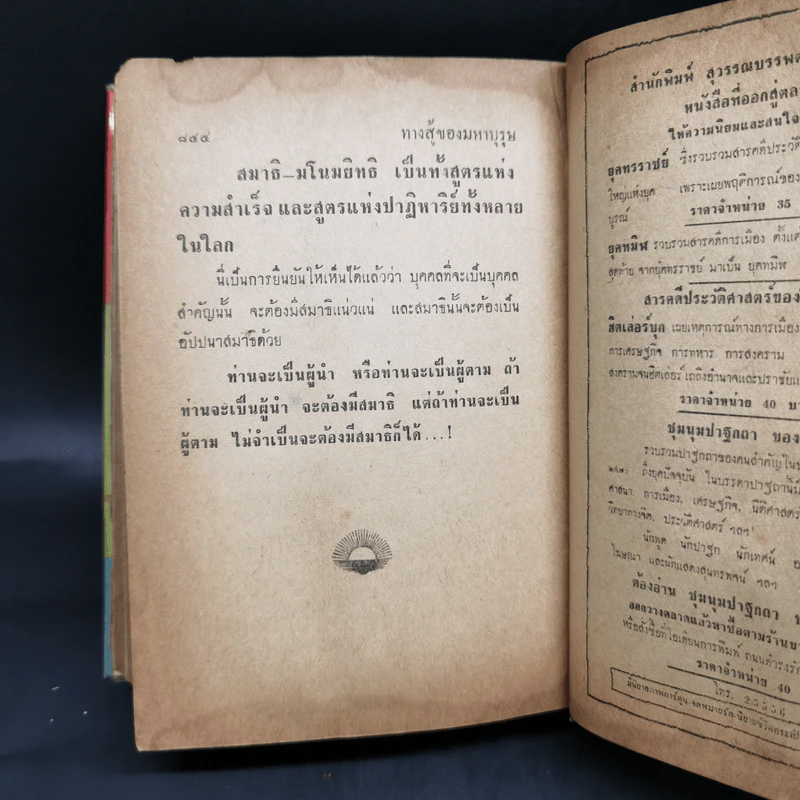 ๘๕๔ ทางสู้ของมหาบุรุษ
สมาธิ–มโนมยิทธิ เป็นทั้งสูตรแห่ง
ความสำเร็จ และสูตรแห่งปาฏิหาริย์ทั้งหลาย
ในโลก
นี่เป็นการยืนยันให้เห็นได้แล้วว่า บุคคลที่จะเป็นบุคคล
สำคัญนั้น จะต้องมีสมาธิแน่วแน่ และสมาธินั้นจะต้องเป็น
อัปปนาสมาธิด้วย
ท่านจะเป็นผู้นำ หรือท่านจะเป็นผู้ตาม ถ้า
ท่านจะเป็นผู้นำ จะต้องมีสมาธิ แต่ถ้าท่านจะเป็น
ผู้ตาม ไม่จำเป็นจะต้องมีสมาธิก็ได้...!
สำนักพิมพ์ สุวรรณบรรพต
หนังสือที่ออกสู่ตล
ให้ความนิยมและสนใจ
ยุคทรราชย์ ซึ่งรวบรวมสารคดีประวัติ
ใหญ่แห่งยุค เพราะเผยพฤติการณ์ของ
บูรณ์ ราคาจำหน่าย 35
ยุคทมิฬ รวบรวมสารคดีการเมือง ตั้งแต่
สุดท้าย จากยุคทรราชย์ มาเป็น ยุคทมิฬ
สารคดีประวัติศาสตร์ของ
ฮิตเล่อร์บุก เผยเหตุการณ์ทางการเมือง
การเศรษฐกิจ การทหาร การสงคราม
สงครามจนฮิตเล่อร์ เถลิงอำนาจและปราชัย
ราคาจำหน่าย 40 บา
ชุมนุมปาฐกถา ของ
รวบรวมปาฐกถาของคนสำคัญใน
ถึงยุคปัจจุบัน ในบรรดาปาฐกถานี้
ศาสนา การเมือง, เศรษฐกิจ, นิติศาสตร์
วิทยาทางจิต, ประวัติศาสตร์ ฯลฯ
นักพูด นักปาฐก นักเทศน์
โฆษณา และนักแสดงสุนทรพจน์ ฯลฯ
ต้องอ่าน ชุมนุมปาฐกถา
ออกวางตลาดแล้วหาซื้อตามร้าน
หรือสั่งซื้อที่โอเดียนการพิมพ์ ถนนดำรงรัก
ราคาจำหน่าย 40
โทร.